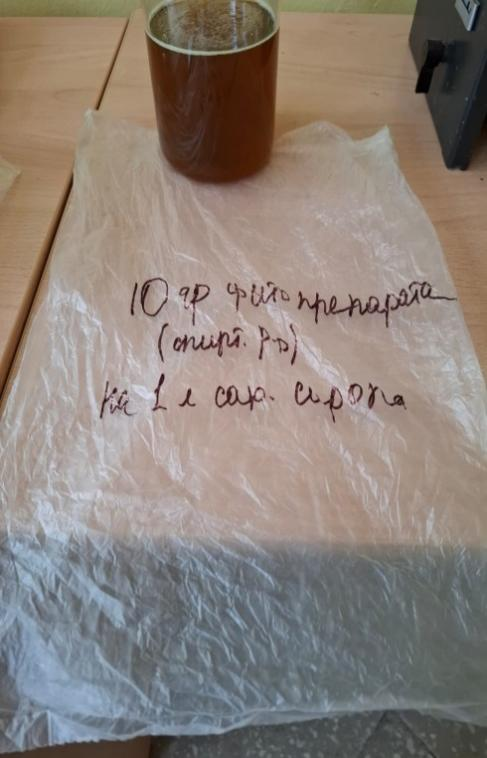 10 гр фитопрепарата
(спирт. р-р)
на 1 л сах. сиропа